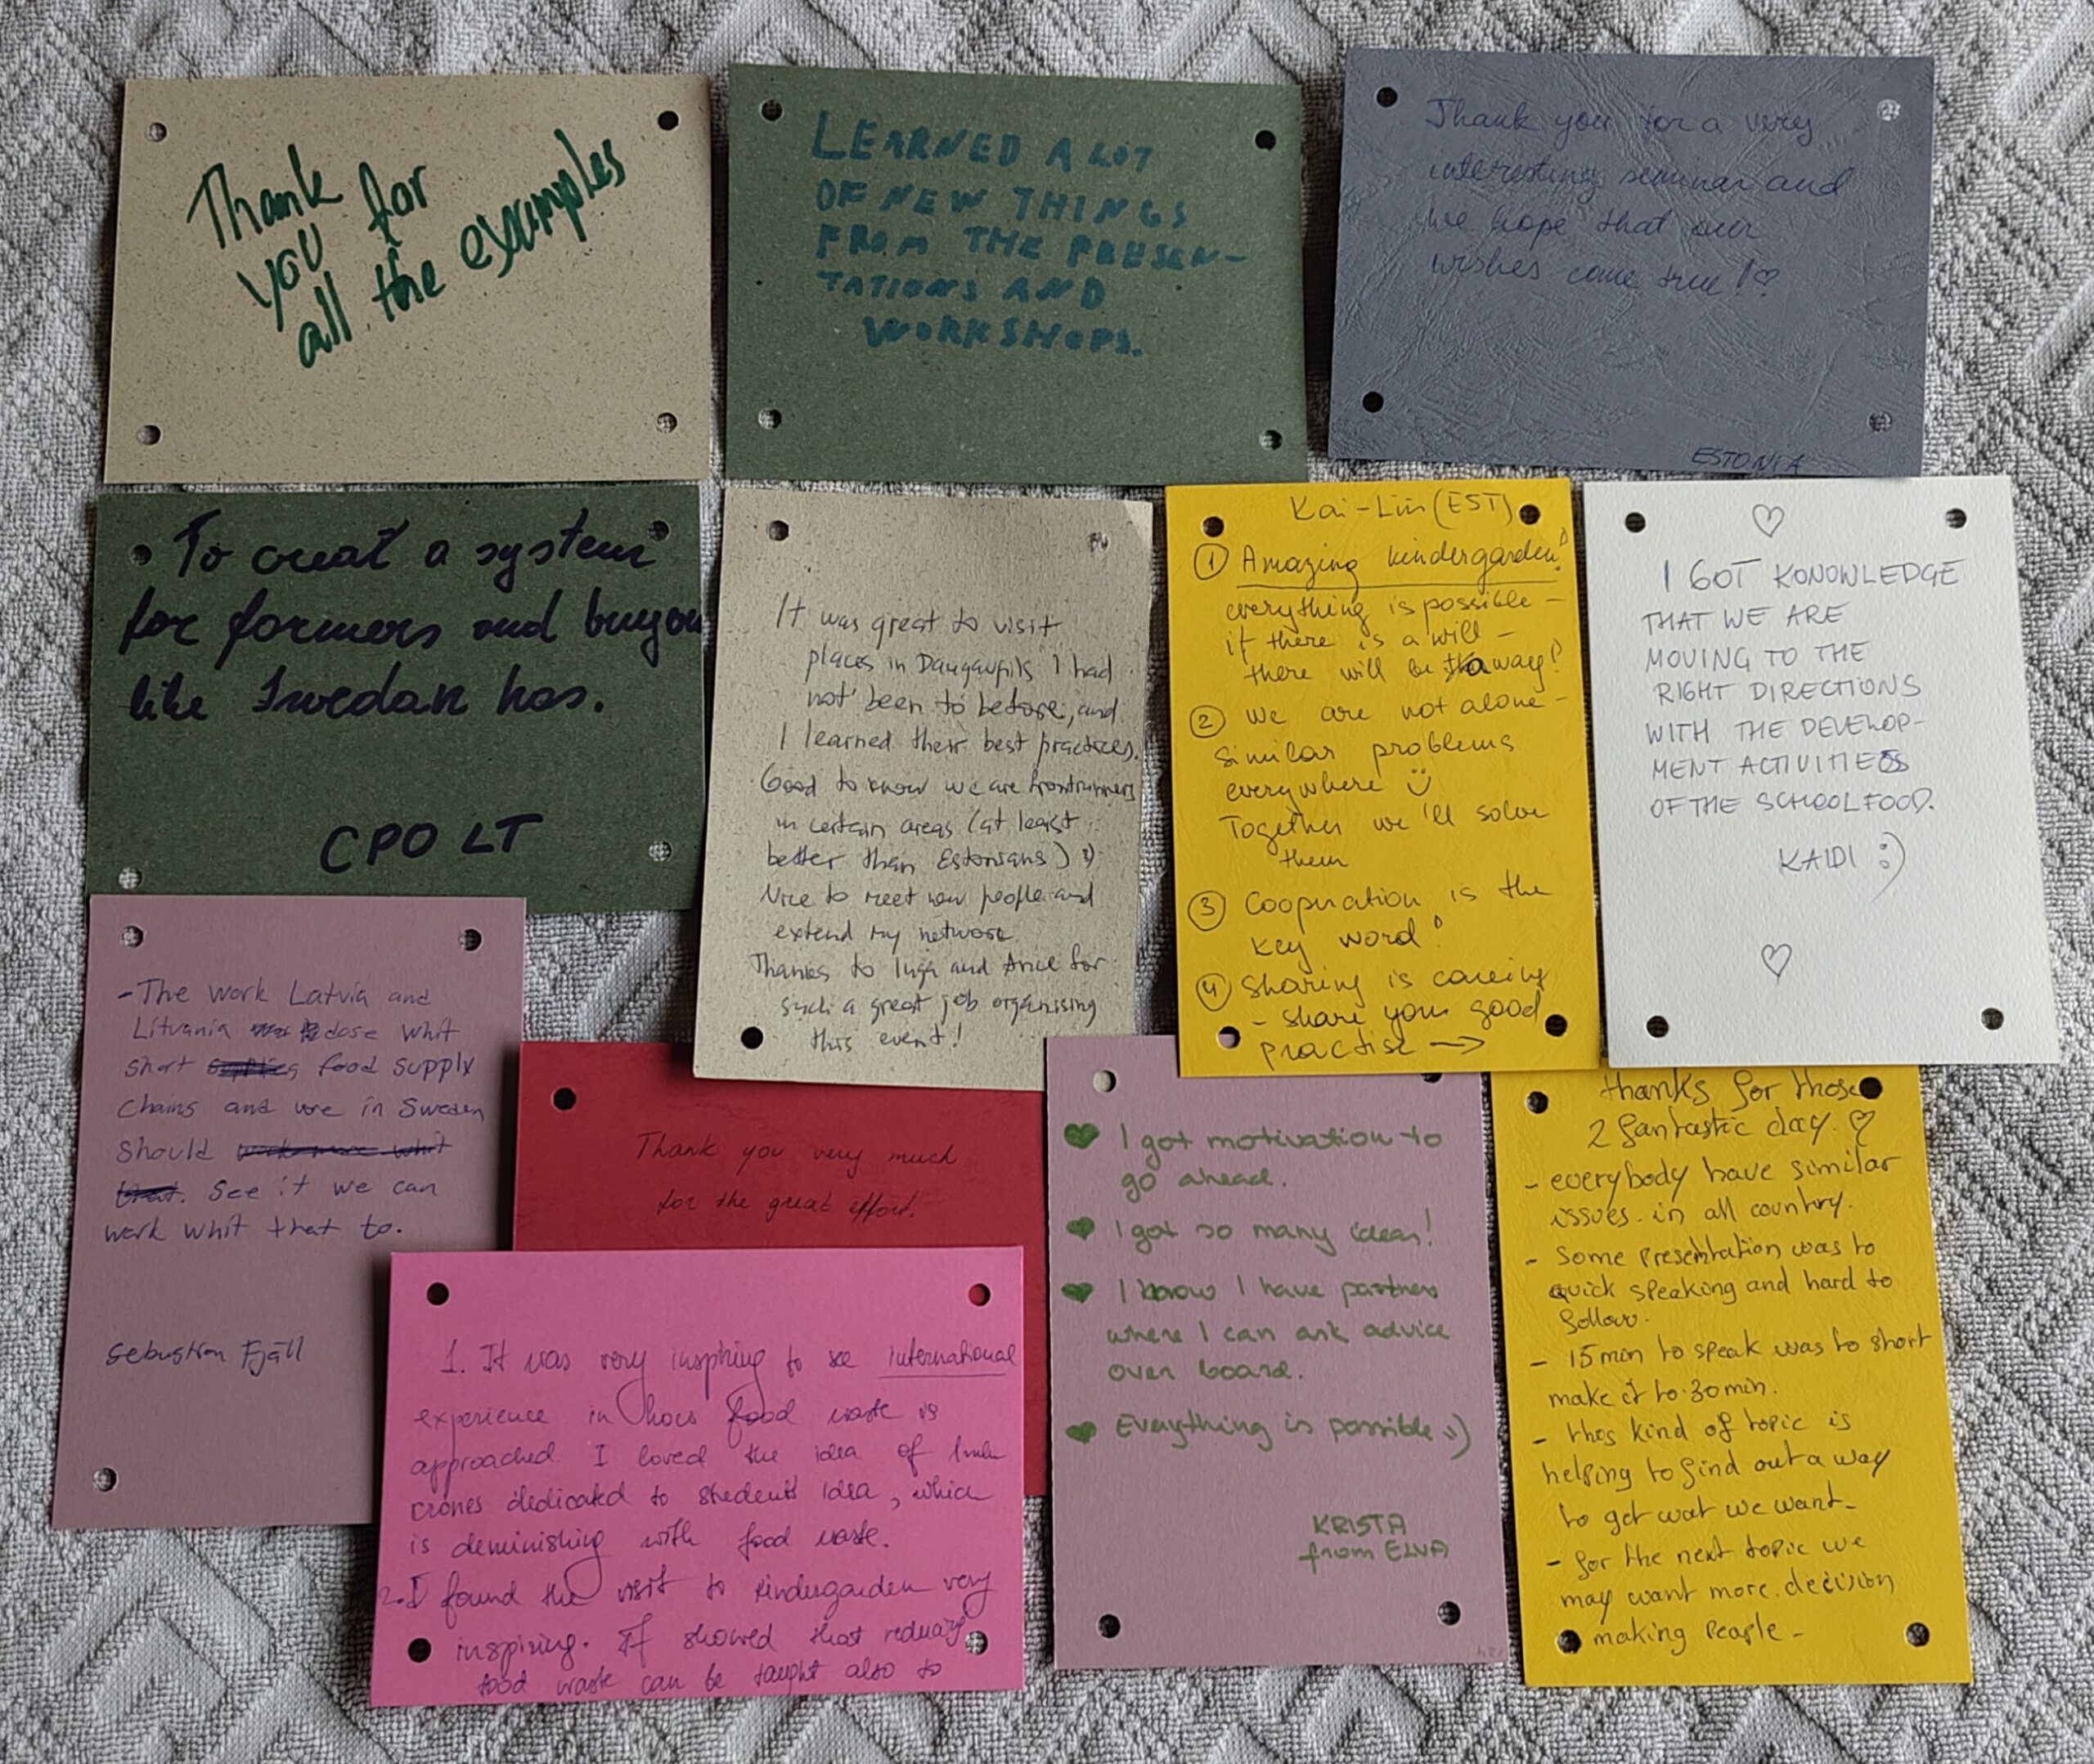 Thank
you for
all the examples
LEARNED A LOT
OF NEW THINGS
FROM THE PRESEN-
TATIONS AND
WORKSHOPS.
Thank you for a very
interesting seminar and
we hope that our
wishes come true! ♡
ESTONIA
To creat a system
for formers and
like Swedan has.
CPO LT
It was great to visit
places in Daugavpils I had
not been to before, and
I learned their best practices.
Good to know we are frontrunners
in certain areas (at least
better than Estonians) :)
Nice to meet new people and
extend my network
Thanks to Inga and for
such a great job organising
this event!
Kai-Liis (EST)
① Amazing kindergarden!
everything is possible -
if there is a will -
there will be a way!
② We are not alone -
similar problems
everywhere ☺
Together we'll solve
them
③ Cooperation is the
key word!
④ Sharing is caring
- share your good
practise →
♡
I GOT KONOWLEDGE
THAT WE ARE
MOVING TO THE
RIGHT DIRECTIONS
WITH THE DEVELOP-
MENT ACTIVITIES
OF THE SCHOOLFOOD.
KAIDI :)
♡
- The work Latvia and
Lituania dose whit
short food supply
chains and we in Sweden
should
see it we can
work whit that to.
Sebastian Fjäll
Thank you very much
for the great effort.
1. It was very inspiring to se international
experience in how food waste is
approached. I loved the idea of
crones dedicated to students idea, which
is deminishing with food waste.
2. I found the visit to kindergarden very
inspiring. It showed that reducing
food waste can be taught also to
♥ I got motivation to
go ahead.
♥ I got so many ideas!
♥ I know I have partners
where I can ask advice
over board.
♥ Everything is possible :)
KRISTA
from ELVA
thanks for those
2 fantastic day. ♡
- everybody have similar
issues in all country.
- Some presentation was to
quick speaking and hard to
follow.
- 15 min to speak was to short
make it to 30 min.
- thos kind of topic is
helping to find out a way
to get wat we want -
- for the next topic we
may want more decision
making people -